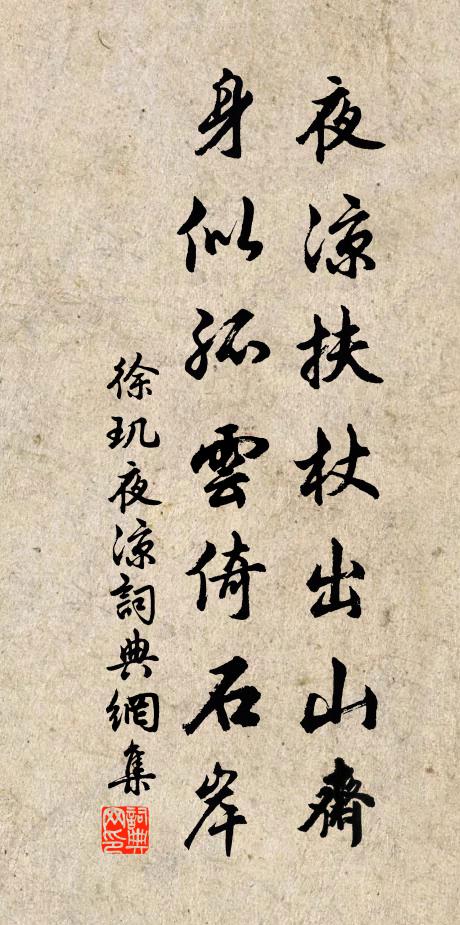 夜涼扶杖出山齋
身似孤雲倚石岸
徐玑夜涼詞典網集
詞典網印